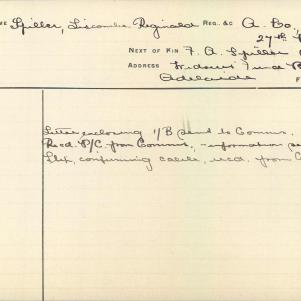 ME Spiller, Liscombe Reginald REG. &C A. Bo
27th
NEXT OF KIN F. A. Spiller
ADDRESS Widows' Fund B
Adelaide F
Letter enclosing 1/B sent to Commr.
Recd. P/C. from Commr, - information se
Slip, confirming cable, recd. from C